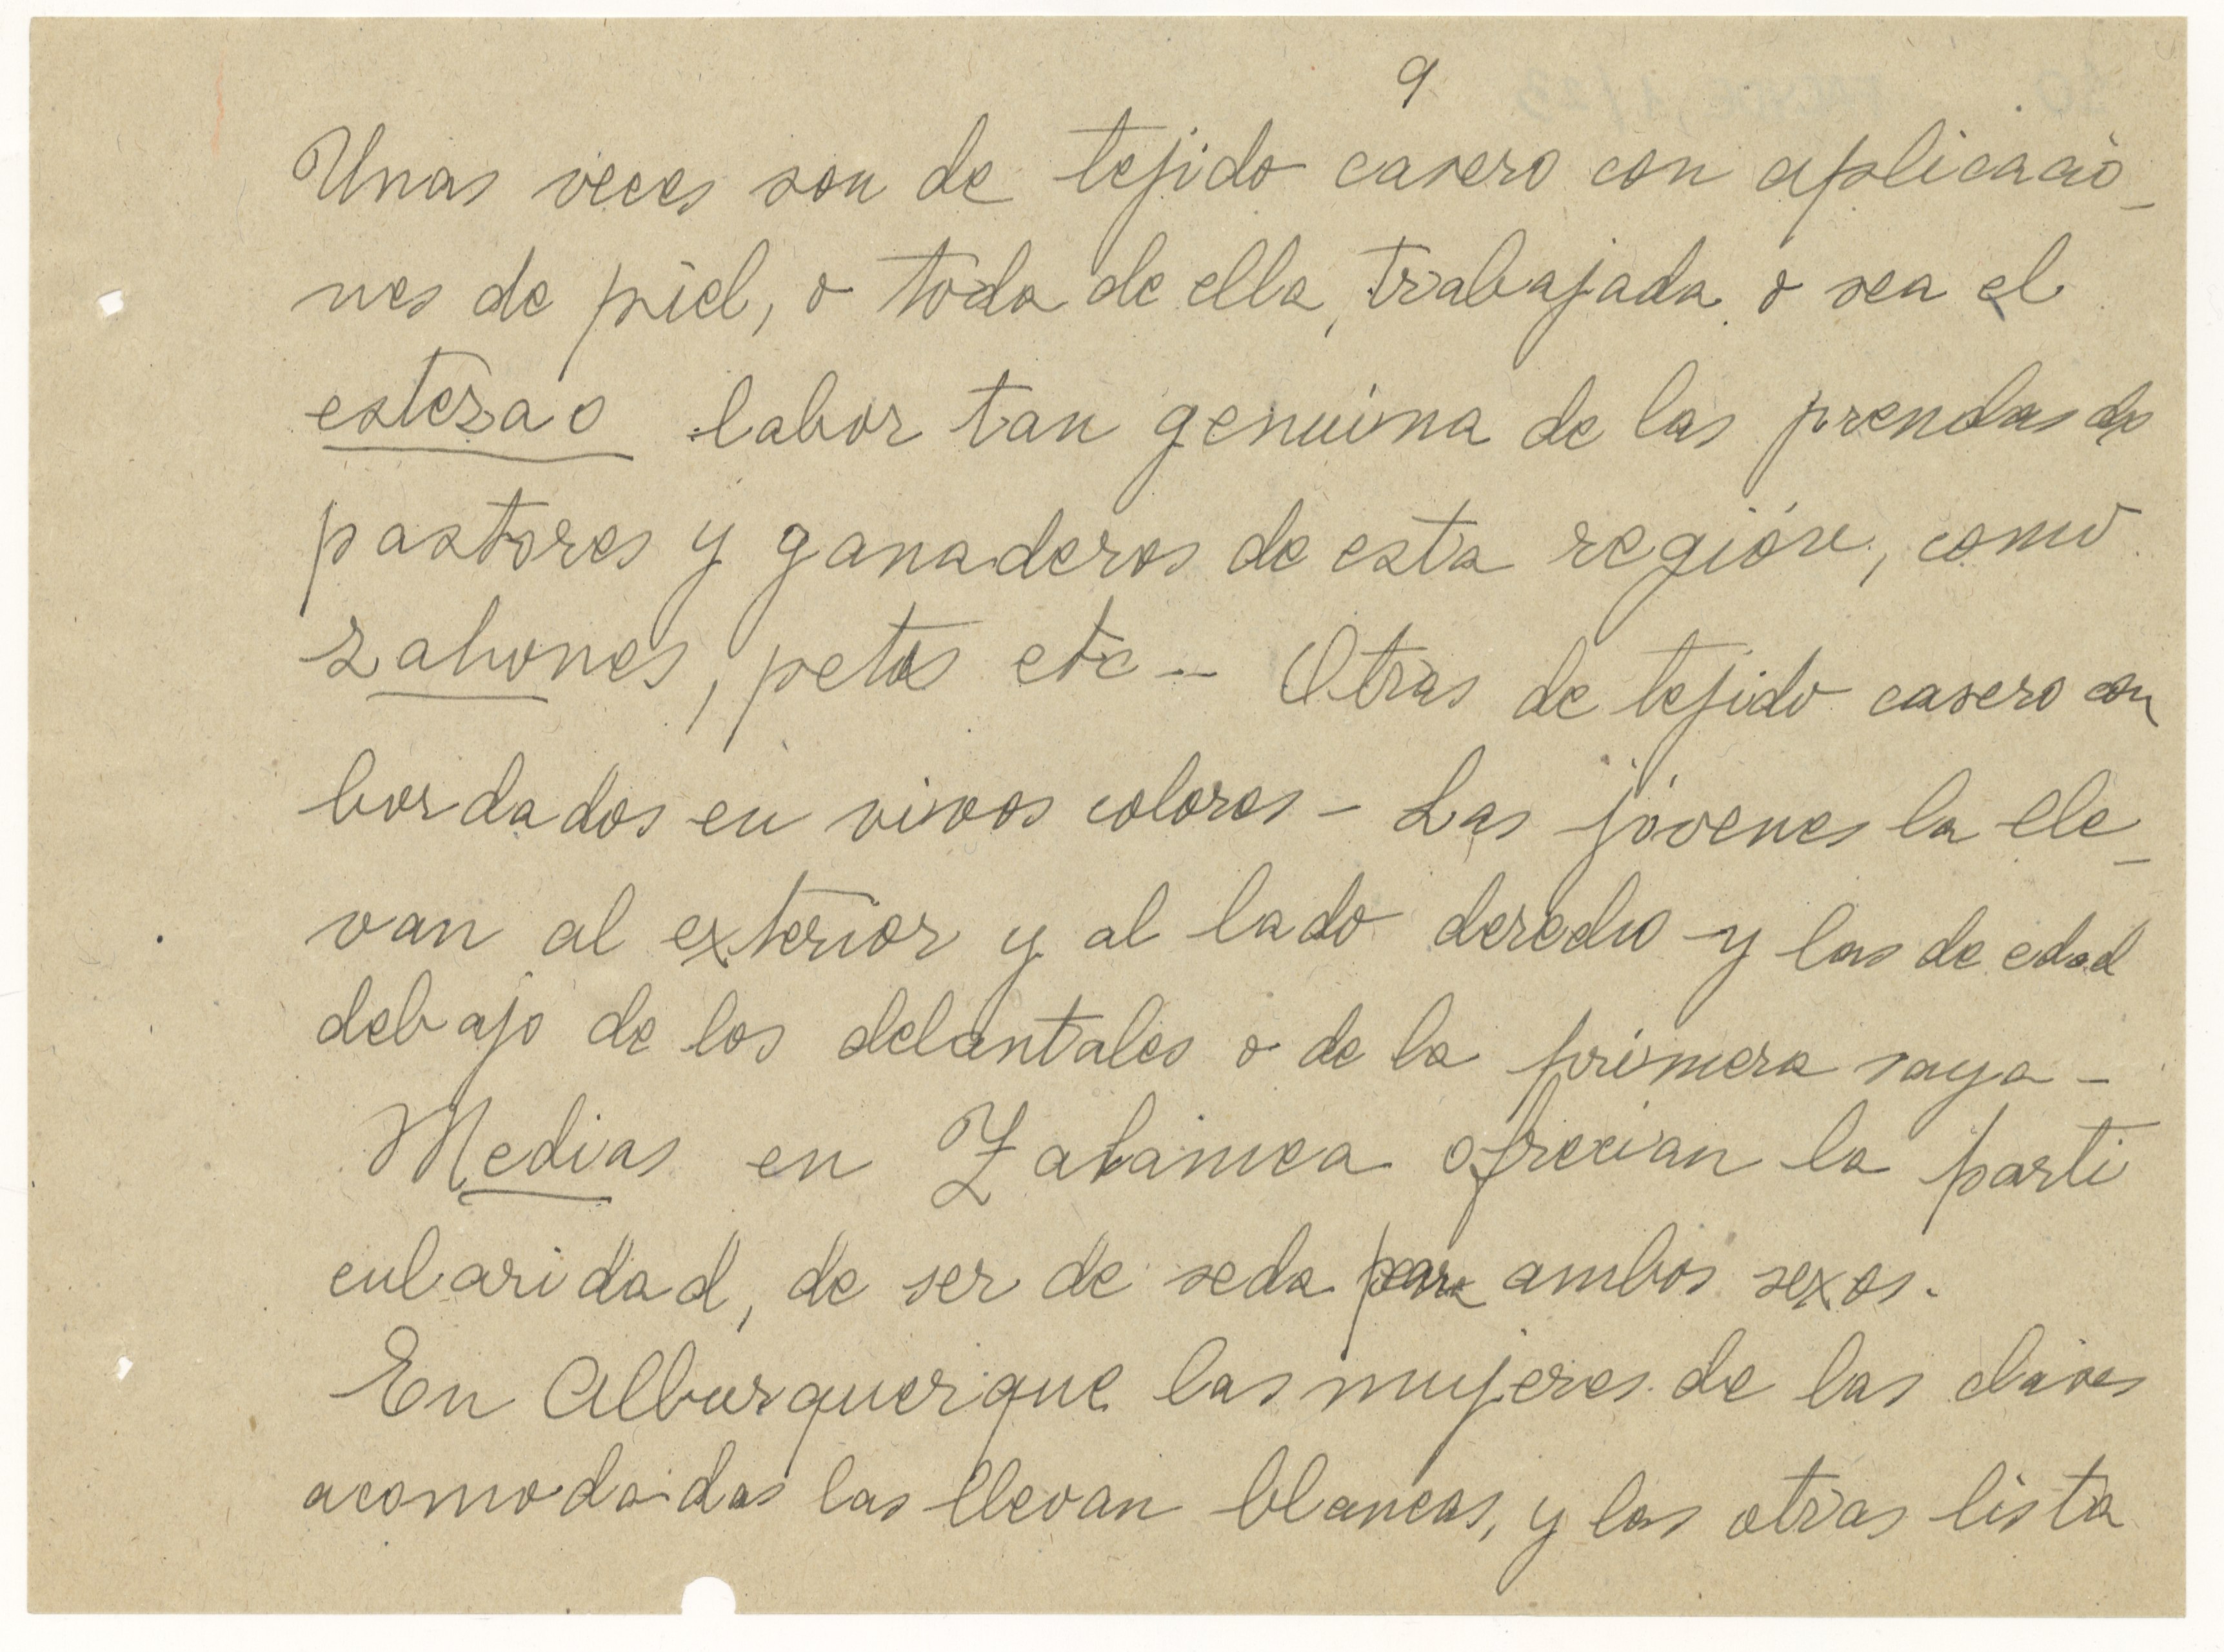 9
Unas veces son de tejido casero con aplicacio_
nes de piel, o toda de ella, trabajada o sea el
estezao labor tan genuina de las prendas de
pastores y ganaderos de esta región, como
zahones, petos etc - Otras de tejido casero con
bordados en vivos colores - Las jóvenes la lle_
van al exterior y al lado derecho - y las de edad
debajo de los delantales o de la primera saya -
Medias en Zalamea ofrecian la parti
cularidad, de ser de seda para ambos sexos.
En Alburquerque las mujeres de las clases
acomodadas las llevan blancas, y las otras lista